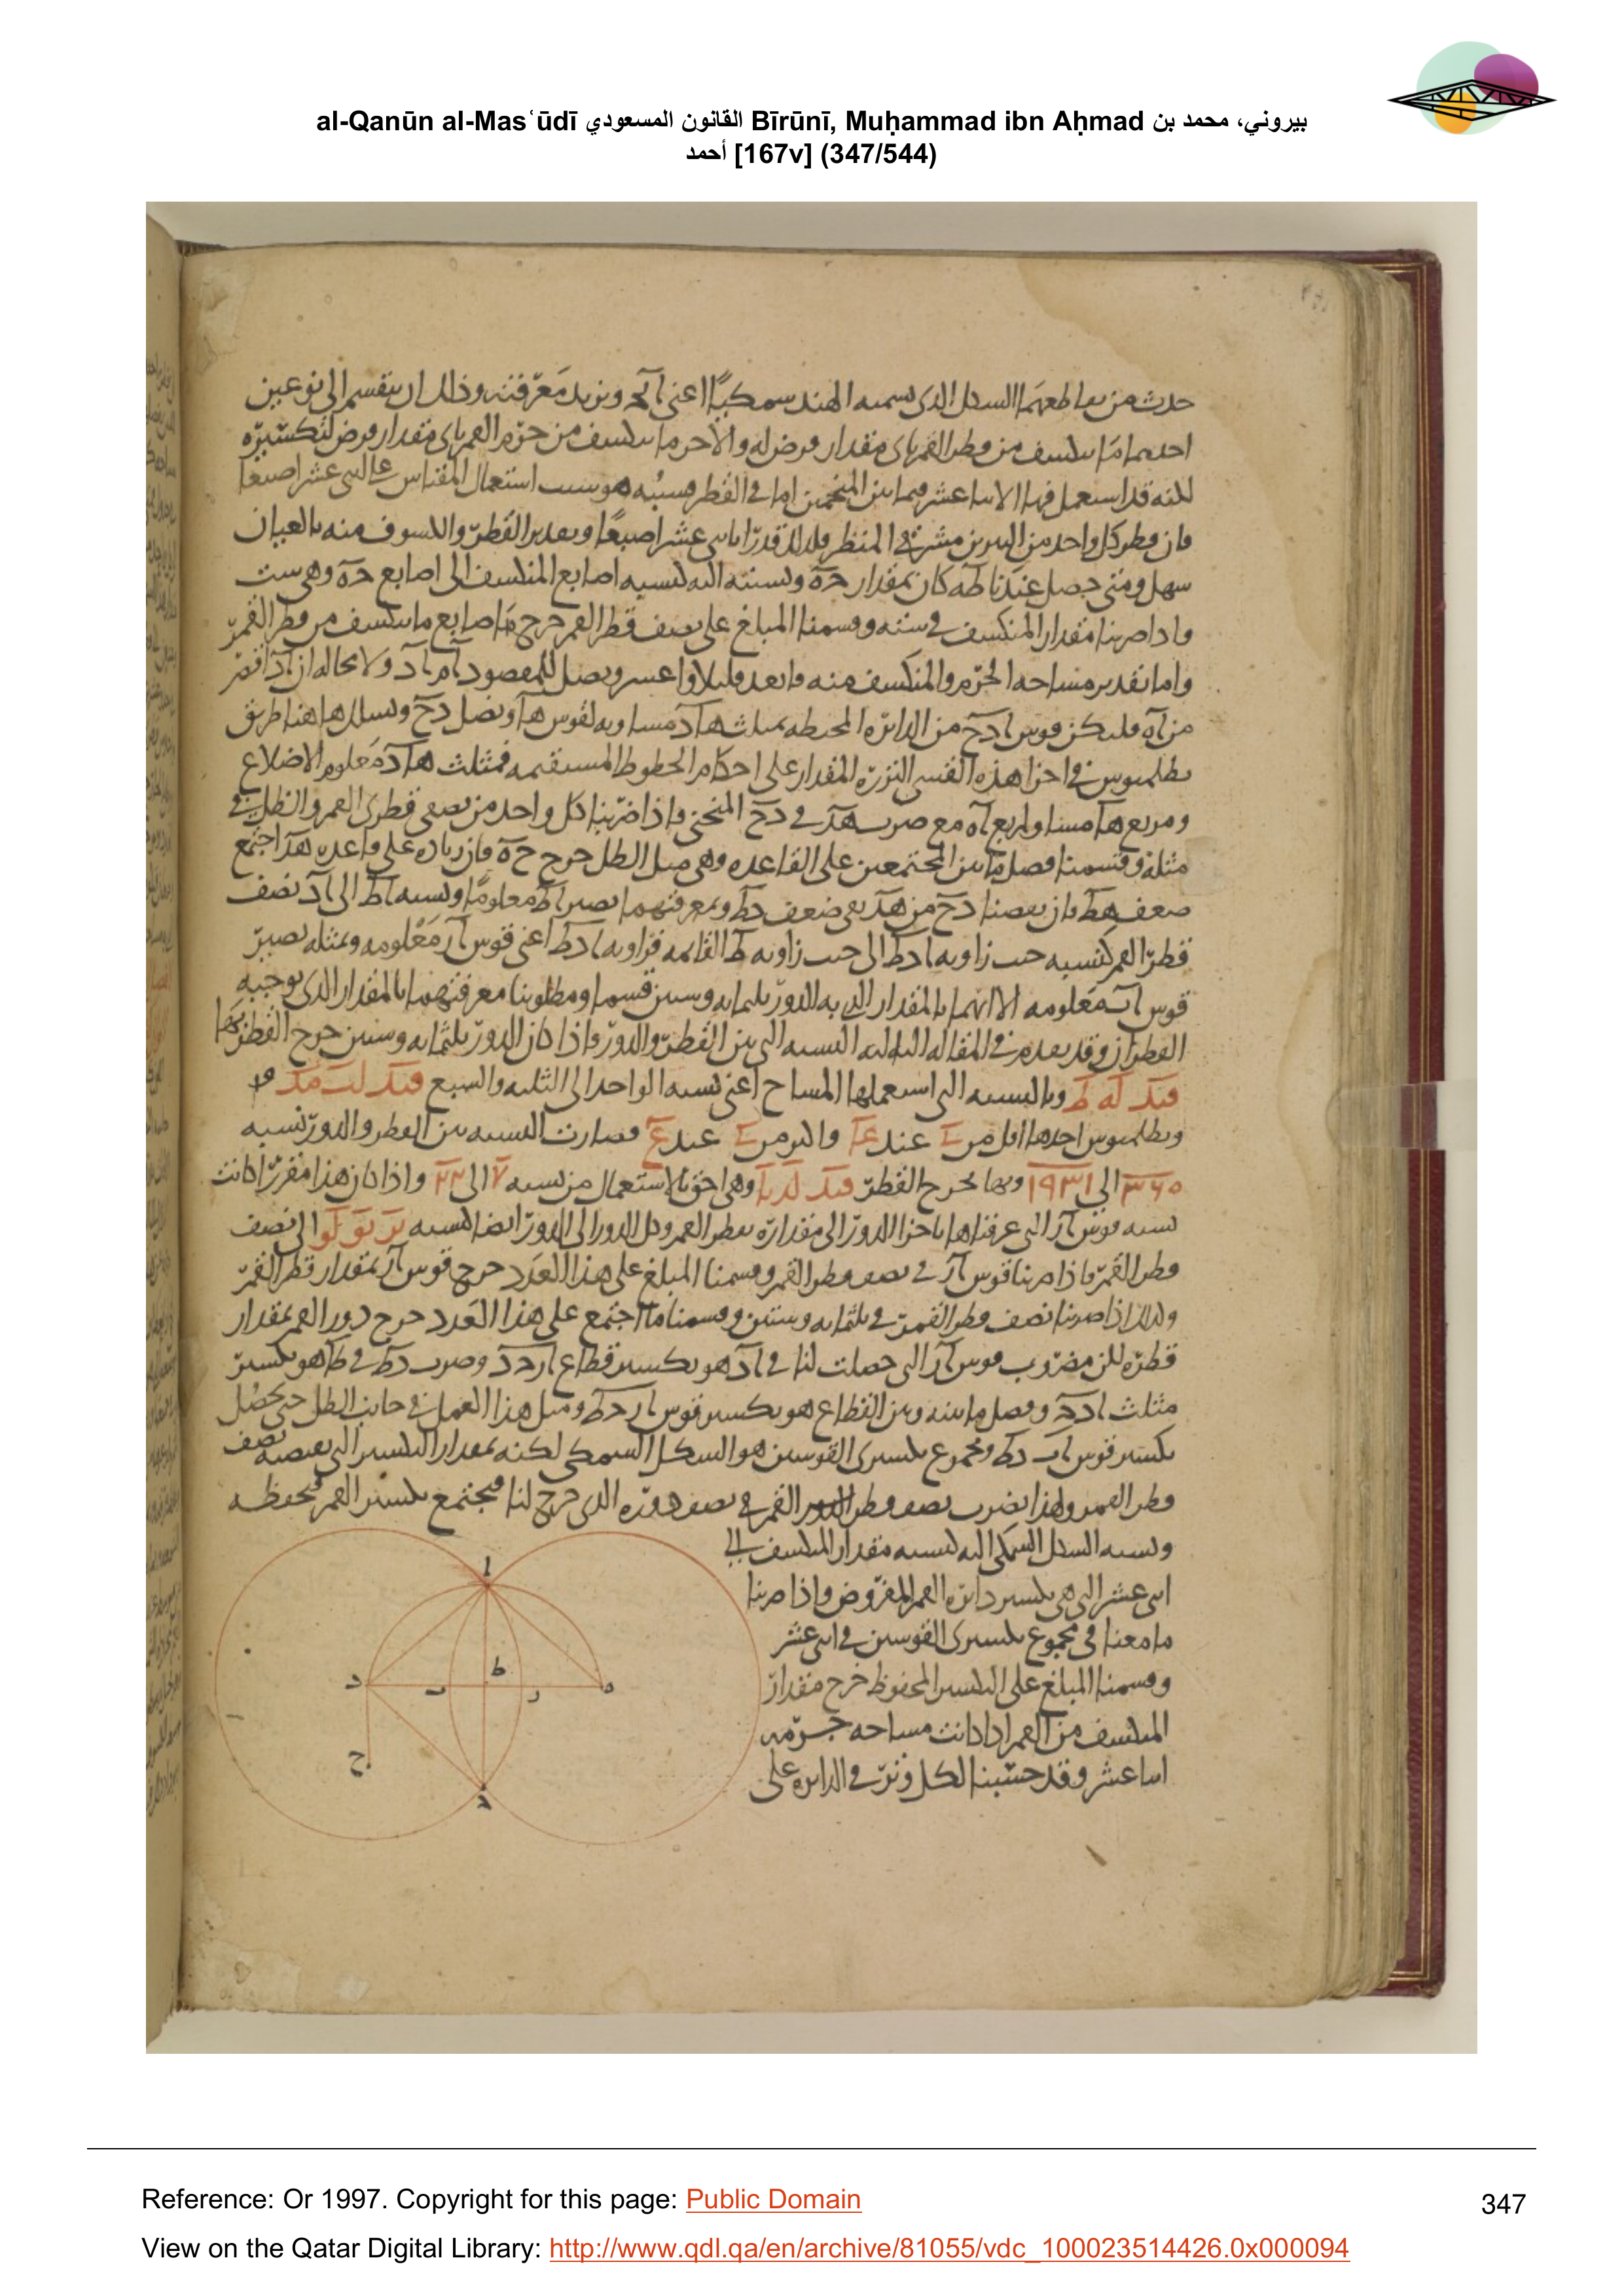 al-Qanūn al-Masʿūdī القانون المسعودي Bīrūnī, Muḥammad ibn Aḥmad بيروني، محمد بن
أحمد [167v] (347/544)
حدث من تقاطعهما الشكل الذى يسميه الهند سمكيًا اعنى ونريد معرفته وذلك ان ينقسم الى نوعين
احدهما ما ينكسف من قطر القمر باى مقدار فرض له والآخر ما ينكسف من جرم القمر باى مقدار فرض لتكسيره
لكنه قد استعمل فيها الاثنا عشر فيما بين المنجمين اما فى القطر فسببه هو استعمال المقياس على اثنى عشر اصبعا
فان قطر كل واحد من النيرين فى المنظر فلذلك قدر باثنى عشر اصبعًا وتقدير القطر والكسوف منه بالعيان
سهل ومتى حصل عندنا طه كان بمقدار حه ونسبته اليه كنسبة اصابع المنكسف الى اصابع حه وهى ست
واذا ضربنا مقدار المنكسف فى ستة وقسمنا المبلغ على نصف قطر القمر خرج اصابع ما ينكسف من قطر القمر
واما تقدير مساحة الجرم والمنكسف منه فابعد قليلا واعسر ونصل للمقصود ام اد ولا محالة ان اد اقصر
من اه فليكن قوس ادح من الدائرة المحيطة بمثلث هاد مساوية لقوس ها ونصل دح ونسلك هاهنا طريق
بطلميوس فى اجزا هذه القسى النزرة المقدار على احكام الخطوط المستقيمة فمثلث هاد معلوم الاضلاع
ومربع ها مساو لمربع اه مع ضرب هد فى دح المنحنى واذا ضربنا كل واحد من نصفى قطرى القمر والظل فى
مثله وقسمنا فصل ما بين المجتمعين على القاعدة وهى ميل الظل خرج حه فان زيادة على قاعدة هد اجتمع
ضعف هط فان نقصنا دح من هد بقى ضعف دط وبمعرفتهما يصير اط معلومًا ونسبة اط الى اد نصف
قطر القمر كنسبة جيب زاوية ادط الى جيب زاوية ط القائمة فزاوية ادط اعنى قوس ار معلومة وبمثله يصير
قوس اب معلومة الا انهما بالمقدار الذى به الدور ثلثمائة وستين قسما ومطلوبنا معرفتهما بالمقدار الذى يوجبه
القطران وقد تقدم فى المقالة الثالثة النسبة التى بين القطر والدور واذا كان الدور ثلثمائة وستين خرج القطر بها
قيد له ط وبالنسبة التى استعملها المساح اعنى نسبة الواحد الى الثلثة والسبع قيد لب مد
وبطلميوس احدهما اقل من عند واكثر من عند فصارت النسبة بين القطر والدور نسبة
٣٦٠ الى وبها يخرج القطر وهى احق بالاستعمال من نسبة ٧ الى ٢٢ واذا كان هذا متقررًا كانت
نسبة قوس ار التى عرفناها باجزا الدور الى مقداره بقطر القمر وكل الدور الى الدور ايضا كنسبة نز يو لو الى نصف
قطر القمر فاذا ضربنا قوس ار فى نصف قطر القمر وقسمنا المبلغ على هذا العدد خرج قوس ار بمقدار قطر القمر
وكذلك اذا ضربنا نصف قطر القمر فى ثلثمائة وستين وقسمنا ما اجتمع على هذا العدد خرج دور القمر بمقدار
قطره لكن مضروب قوس ار التى حصلت لنا فى اد هو تكسير قطاع وضرب دط فى طا هو تكسير
مثلث وفصل ما بينه وبين القطاع هو تكسير قوس ومثل هذا العمل فى جانب الظل حتى يحصل
تكسير قوس ومجموع تكسيرى القوسين هو الشكل السمكى لكنه بمقدار التكسير الذى نصف
قطر القمر ولهذا نضرب نصف قطر القمر فى نصف دوره الذى خرج لنا فيجتمع تكسير القمر فنحفظه
ونسبة الشكل السمكى اليه كنسبة مقدار المنكسف الى
اثنى عشر التى هى تكسير دائرة القمر المفروض واذا ضربنا
ما معنا فى مجموع تكسيرى القوسين فى اثنى عشر
وقسمنا المبلغ على التكسير المحفوظ خرج مقدار
المنكسف من القمر اذا كانت مساحة جرمه
اثنا عشر وقد حسبنا لكل وتر فى الدائرة على
ا
د
ب
ط
ر
ه
ح
Reference: Or 1997. Copyright for this page: Public Domain
347
View on the Qatar Digital Library: http://www.qdl.qa/en/archive/81055/vdc_100023514426.0x000094